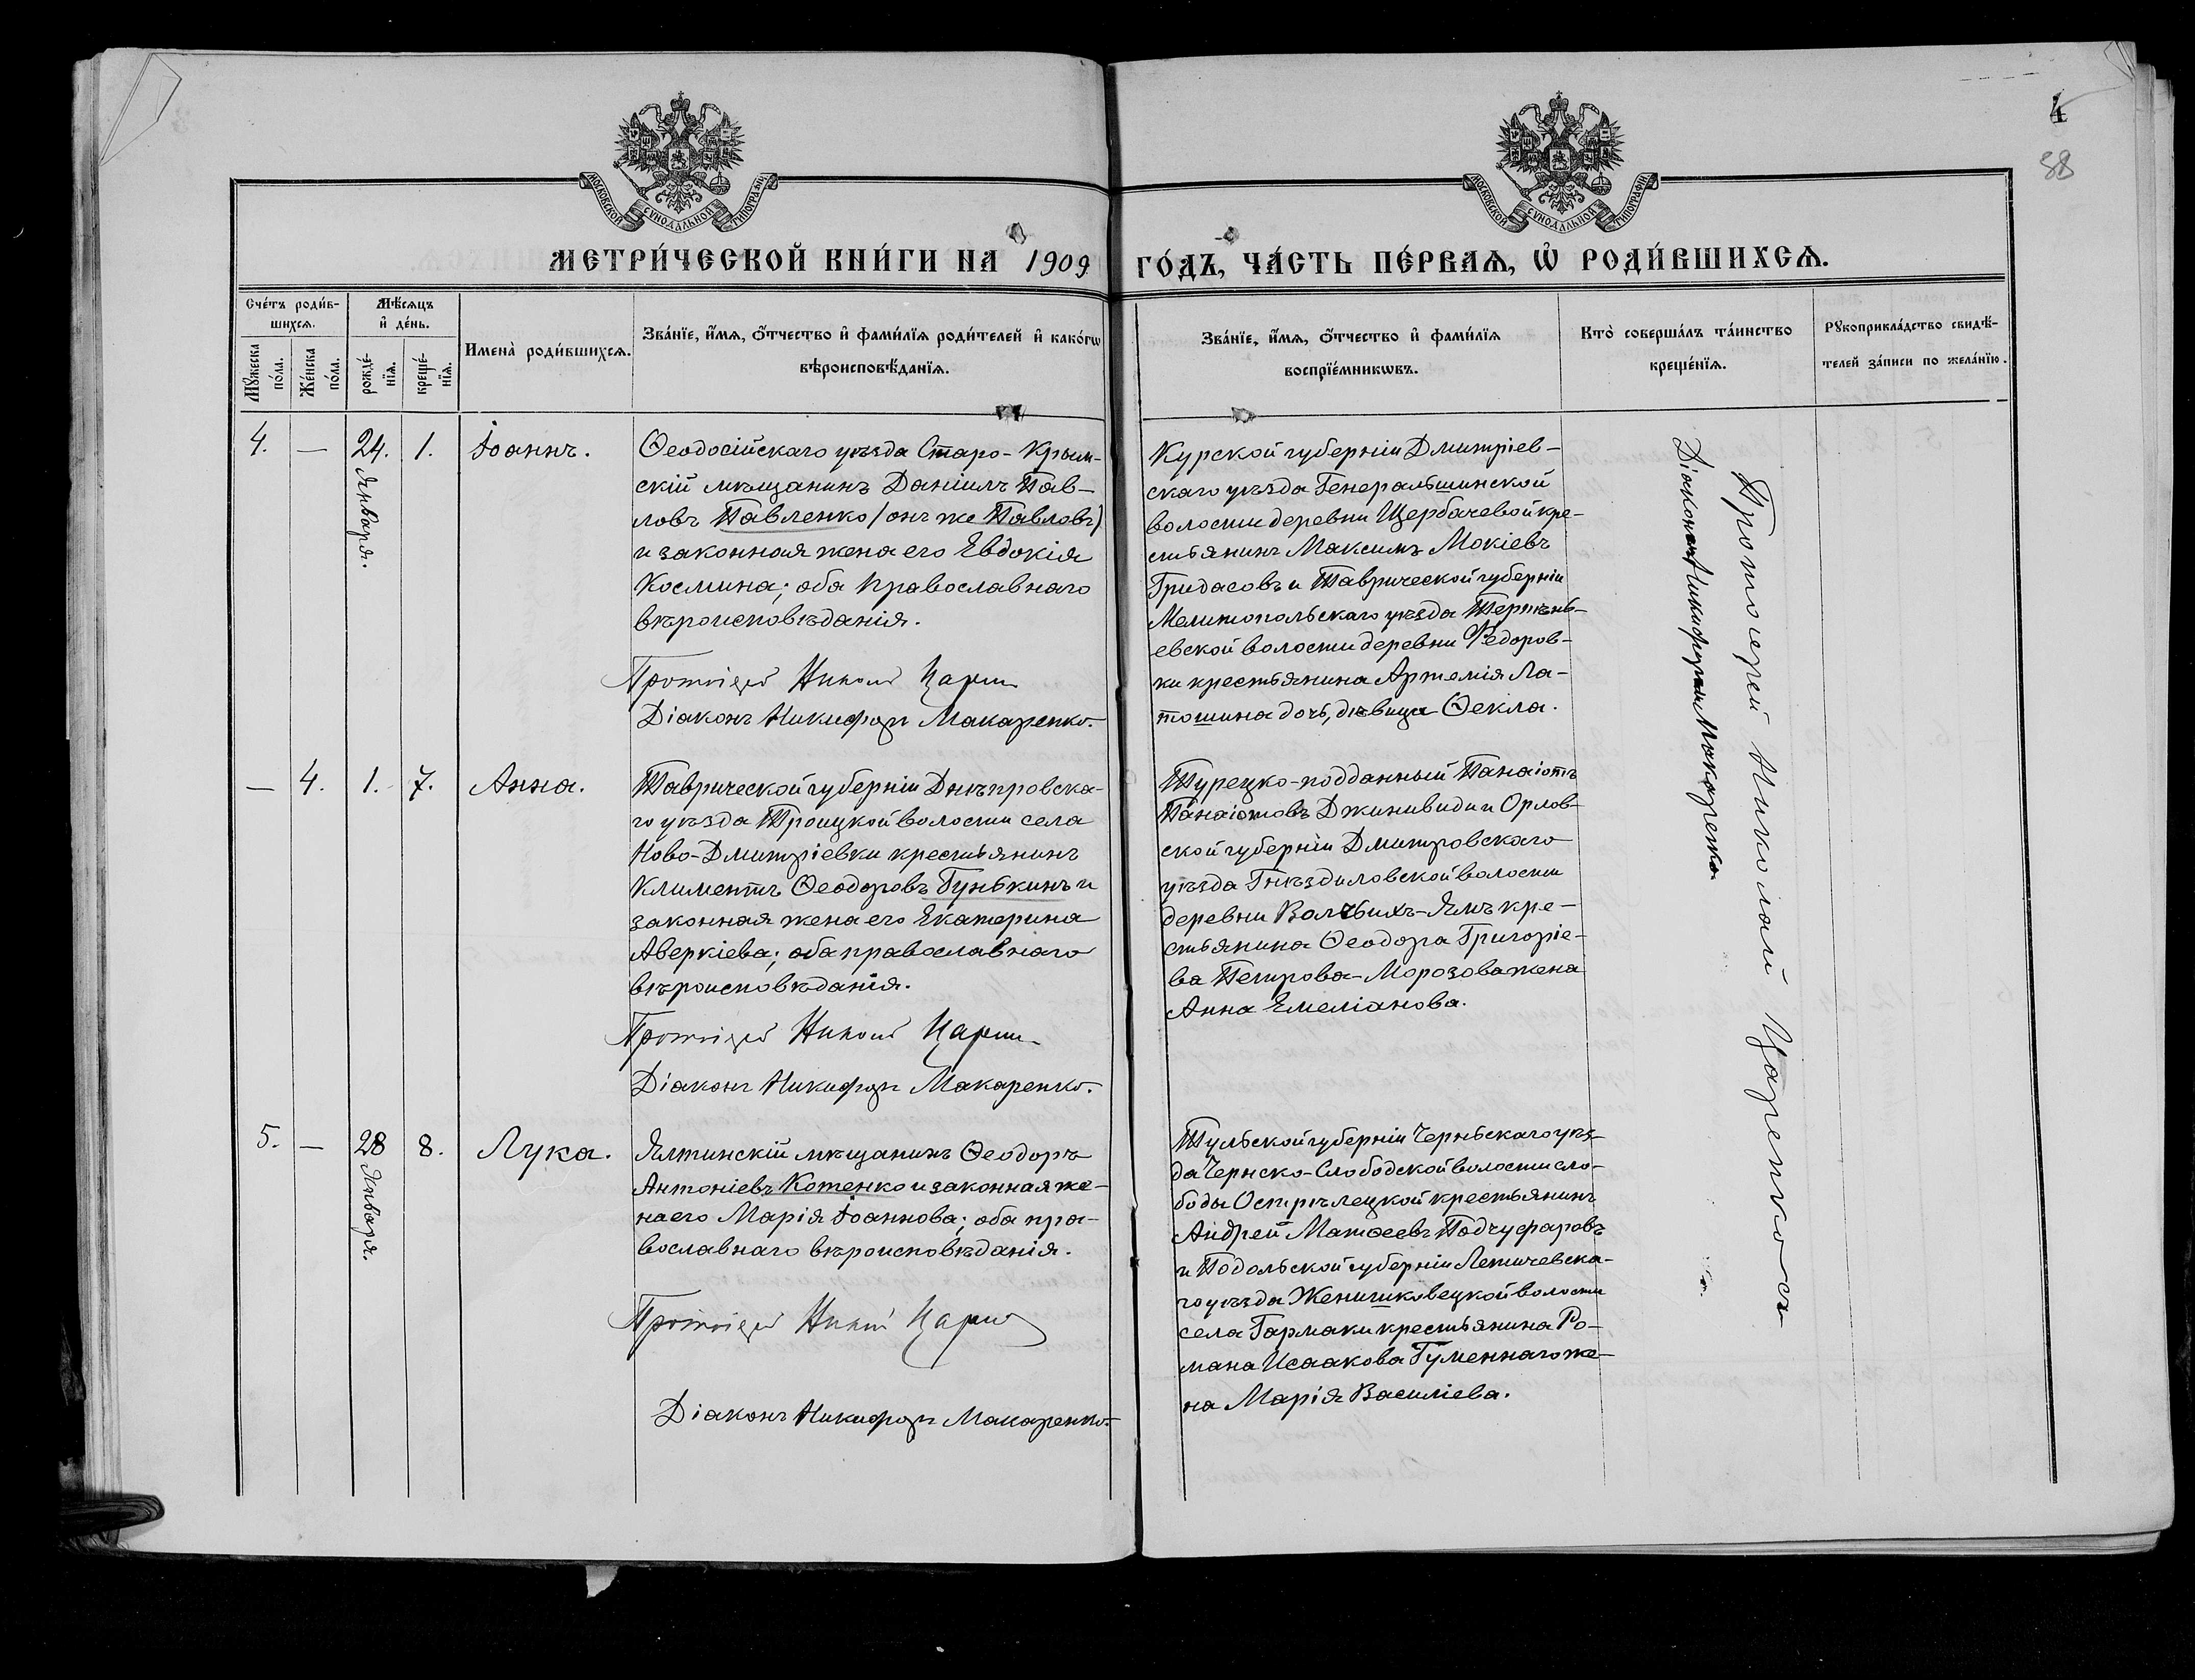 4
38
МОСКОВСКОЙ СУНОДАЛЬНОЙ ТИПОГРАФІИ
МОСКОВСКОЙ СУНОДАЛЬНОЙ ТИПОГРАФІИ
МЕТРИ́ЧЕСКОЙ КНИ́ГИ НА 1909 ГО́ДЪ, ЧА́СТЬ ПЕ́РВАѦ, Ѡ҆ РОДИ́ВШИХСѦ.
Сче́тъ роди́в-
шихсѧ.
Мꙋжеска по́ла.
Же́нска по́ла.
Мѣ́сѧцъ
и҆ де́нь.
рожде́-
нїѧ.
креще́-
нїѧ.
Имена̀ роди́вшихсѧ.
Зва́нїе, и҆́мѧ, ѻ҆́тчество и҆ фами́лїѧ роди́телей и҆ како́гѡ
вѣроисповѣ́данїѧ.
Зва́нїе, и҆́мѧ, ѻ҆́тчество и҆ фами́лїѧ
воспрїе́мникѡвъ.
Кто̀ соверша́лъ та́инство
креще́нїѧ.
Рꙋкоприкла́дство свидѣ́-
телей за́писи по жела́нїю.
4. — 24. Января. 1. Іоаннъ.
Ѳеодосійскаго уѣзда Старо-Крым-
скій мѣщанинъ Даніилъ Пав-
ловъ Павленко (онъ же Павловъ)
и законная жена его Евдокія
Космина; оба православнаго
вѣроисповѣданія.
Протоіерей Николай Царенко
Діаконъ Никифоръ Макаренко.
Курской губерніи Дмитріев-
скаго уѣзда Генеральшинской
волости деревни Щербачевой кре-
стьянинъ Максимъ Мокіевъ
Гридасовъ и Таврической губерніи
Мелитопольскаго уѣзда Терпѣнь-
евской волости деревни Федоров-
ки крестьянина Артемія Ла-
тошина дочь, дѣвица Ѳекла.
— 4. 1. 7. Анна.
Таврической губерніи Днѣпровска-
го уѣзда Троицкой волости села
Ново-Дмитріевки крестьянинъ
Климентъ Ѳеодоровъ Гунькинъ и
законная жена его Екатерина
Аверкіева; оба православнаго
вѣроисповѣданія.
Протоіерей Николай Царенко
Діаконъ Никифоръ Макаренко.
Турецко-подданный Панаіотъ
Панаіотовъ Джинивиди и Орлов-
ской губерніи Дмитровскаго
уѣзда Гнѣздиловской волости
деревни Волчьихъ-Ямъ кре-
стьянина Ѳеодора Григоріе-
ва Петрова-Морозова жена
Анна Емеліанова.
5. — 28 Января. 8. Лука.
Ялтинскій мѣщанинъ Ѳеодоръ
Антоніевъ Котенко и законная же-
на его Марія Іоаннова; оба пра-
вославнаго вѣроисповѣданія.
Протоіерей Николай Царенко
Діаконъ Никифоръ Макаренко.
Тульской губерніи Черньскаго уѣз-
да Чернско-Слободской волости сло-
боды Острѣлецкой крестьянинъ
Андрей Матѳеевъ Подчуфаровъ
и Подольской губерніи Летичевска-
го уѣзда Женишковецкой волости
села Гармаки крестьянина Ро-
мана Исаакова Гуменнаго же-
на Марія Василіева.
Протоіерей Николай Царенко съ
Діакономъ Никифоромъ Макаренко